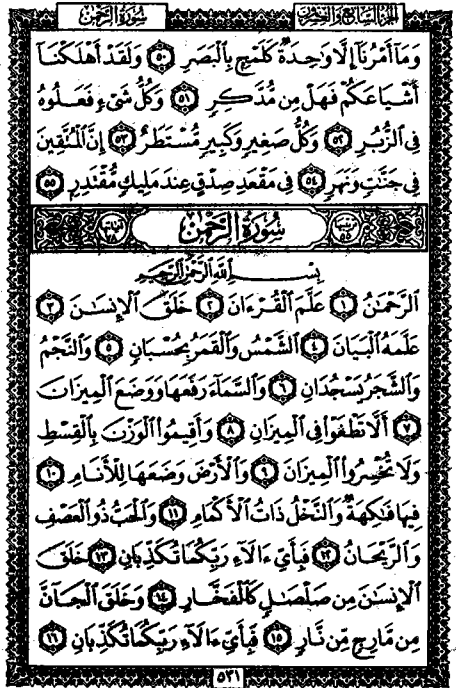 الجزء السابع والعشرون سورة الرحمن
وَمَآ أَمْرُنَآ إِلَّا وَٰحِدَةٌ كَلَمْحٍۭ بِٱلْبَصَرِ ٥٠ وَلَقَدْ أَهْلَكْنَآ
أَشْيَاعَكُمْ فَهَلْ مِن مُّدَّكِرٍ ٥١ وَكُلُّ شَىْءٍ فَعَلُوهُ
فِى ٱلزُّبُرِ ٥٢ وَكُلُّ صَغِيرٍ وَكَبِيرٍ مُّسْتَطَرٌ ٥٣ إِنَّ ٱلْمُتَّقِينَ
فِى جَنَّٰتٍ وَنَهَرٍ ٥٤ فِى مَقْعَدِ صِدْقٍ عِندَ مَلِيكٍ مُّقْتَدِرٍۭ ٥٥
سُورَةُ الرَّحْمَٰن
بِسْمِ ٱللَّهِ ٱلرَّحْمَٰنِ ٱلرَّحِيمِ
ٱلرَّحْمَٰنُ ١ عَلَّمَ ٱلْقُرْءَانَ ٢ خَلَقَ ٱلْإِنسَٰنَ ٣
عَلَّمَهُ ٱلْبَيَانَ ٤ ٱلشَّمْسُ وَٱلْقَمَرُ بِحُسْبَانٍ ٥ وَٱلنَّجْمُ
وَٱلشَّجَرُ يَسْجُدَانِ ٦ وَٱلسَّمَآءَ رَفَعَهَا وَوَضَعَ ٱلْمِيزَانَ
٧ أَلَّا تَطْغَوْا۟ فِى ٱلْمِيزَانِ ٨ وَأَقِيمُوا۟ ٱلْوَزْنَ بِٱلْقِسْطِ
وَلَا تُخْسِرُوا۟ ٱلْمِيزَانَ ٩ وَٱلْأَرْضَ وَضَعَهَا لِلْأَنَامِ ١٠
فِيهَا فَٰكِهَةٌ وَٱلنَّخْلُ ذَاتُ ٱلْأَكْمَامِ ١١ وَٱلْحَبُّ ذُو ٱلْعَصْفِ
وَٱلرَّيْحَانُ ١٢ فَبِأَىِّ ءَالَآءِ رَبِّكُمَا تُكَذِّبَانِ ١٣ خَلَقَ
ٱلْإِنسَٰنَ مِن صَلْصَٰلٍ كَٱلْفَخَّارِ ١٤ وَخَلَقَ ٱلْجَآنَّ
مِن مَّارِجٍ مِّن نَّارٍ ١٥ فَبِأَىِّ ءَالَآءِ رَبِّكُمَا تُكَذِّبَانِ ١٦
٥٣١